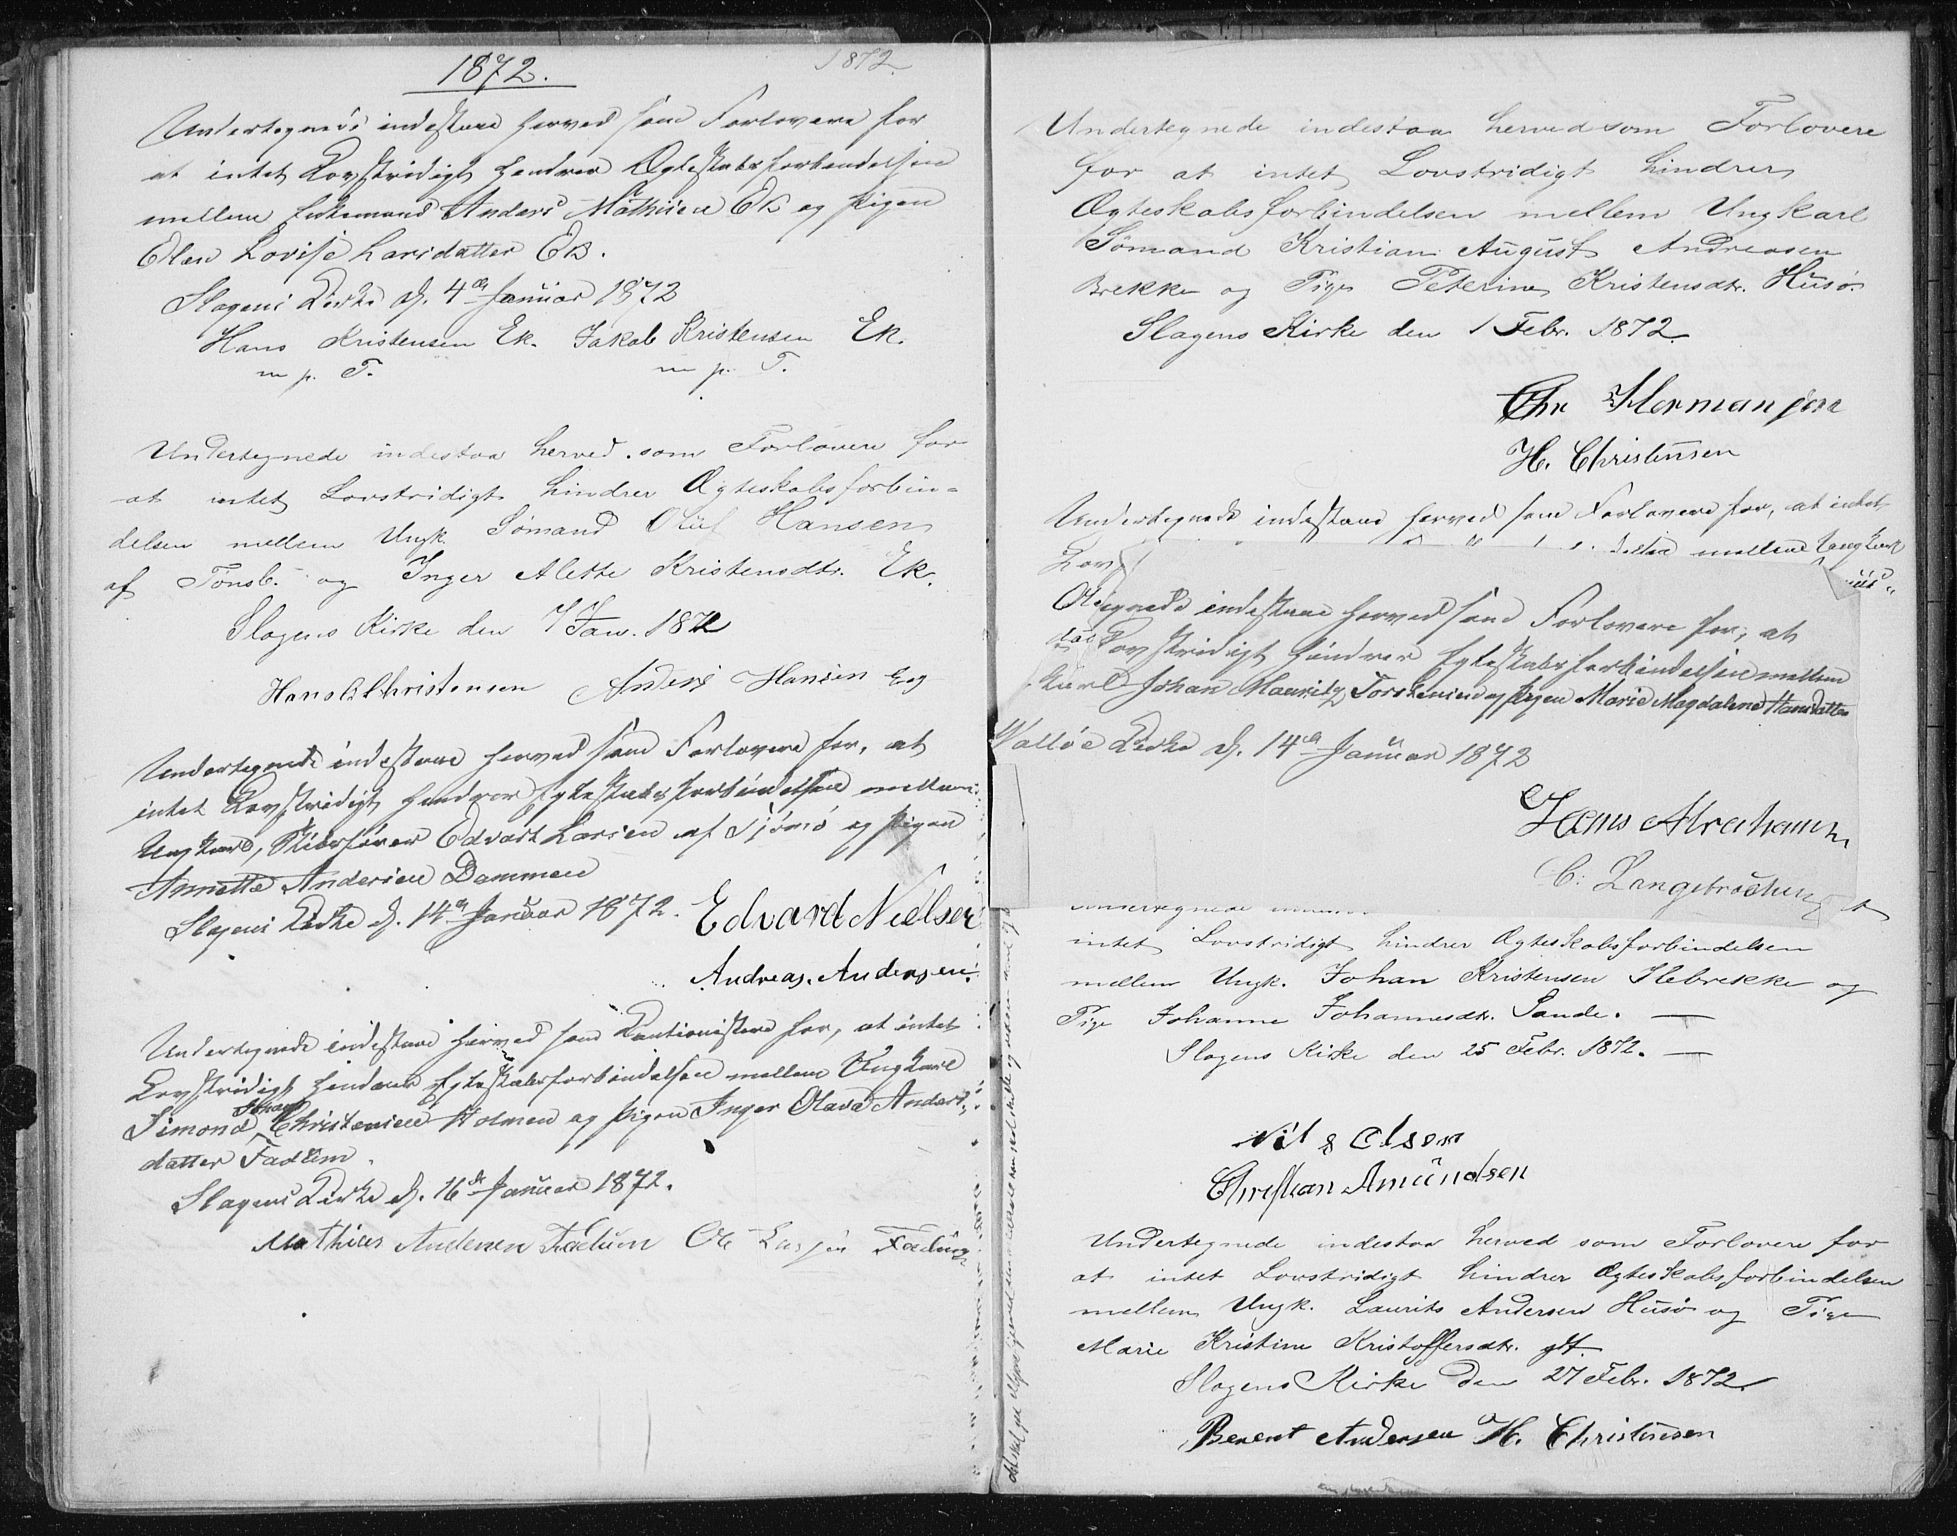 1872.
1872.
Undertegnede indestaae herved som Forlovere for
at intet Lovstridigt hindrer Ægteskabsforbindelsen
mellem Enkemand Anders Mathisen Ek og Pigen
Elen Lovise Larsdatter Ek.
Slagens Kirke d. 4de Januar 1872
Hans Kristensen Ek. Jakob Kristensen Ek.
m p. T. m p. T.
Undertegnede indestaa herved som Forlovere for
at intet Lovstridigt hindrer Ægteskabsforbin=
delsen mellem Ungk. Sømand Oluf Hansen
af Tønsb. og Inger Alette Kristensdtr. Ek.
Slagens Kirke den 7 Jan. 1872
Hans Christensen Anders Hansen Eeg
Undertegnede indestaae herved som Forlovere for, at
intet Lovstridigt hindrer Egteskabsforbindelsen mellem
Ungkarl, Skibsfører Edvart Larsen af Tjømø og Pigen
Annette Andersen Dammen
Slagens Kirke d. 14de Januar 1872.
Edvard Nielsen
Andreas. Andersen.
Undertegnede indestaae herved som Kautionister for, at intet
Lovstridigt hindrer Egteskabsforbindelsen mellem Ungkarl
Simond Johan Christensen Holmen og Pigen Inger Olava Anders=
datter Fadum.
Slagens Kirke d. 16de Januar 1872.
Mathias Andersen Fadum Ole Larsen Fadum
Undertegnede indestaa herved som Forlovere
for at intet Lovstridigt hindrer
Ægteskabsforbindelsen mellem Ungkarl
Sømand Kristian August Andreasen
Brekke og Pige Peterine Kristensdtr. Husø.
Slagens Kirke den 1 Febr. 1872
Chr Hermansen
H. Christensen
Undertegnede indestaae herved som Forlovere for, at intet
Lov mellem Ungkarl
Ol
egnede indestaae herved som Forlovere for, at
Lovstridigt hindrer Egteskabsforbindelsen mellem
karl Johan Mauritz Torstensen og Pigen Marie Magdalene Hansdatter
Valløe Kirke d. 14de Januar 1872
Hans Abrahams
C. Langebrochen
Undertegnede
intet Lovstridigt hindrer Ægteskabsforbindelsen
mellem Ungk. Johan Kristensen Slebrekke og
Pige Johanne Johannesdtr. Sande. —
Slagens Kirke den 25 Febr. 1872. —
Nils Olsen
Christian Amundsen
Undertegnede indestaa herved som Forlovere for
at intet Lovstridigt hindrer Ægteskabsforbindelsen
mellem Ungk. Laurits Andersen Husø og Pige
Marie Kristine Kristoffersdtr.
Slagens Kirke den 27 Febr. 1872.
Berent Andersen H. Christensen